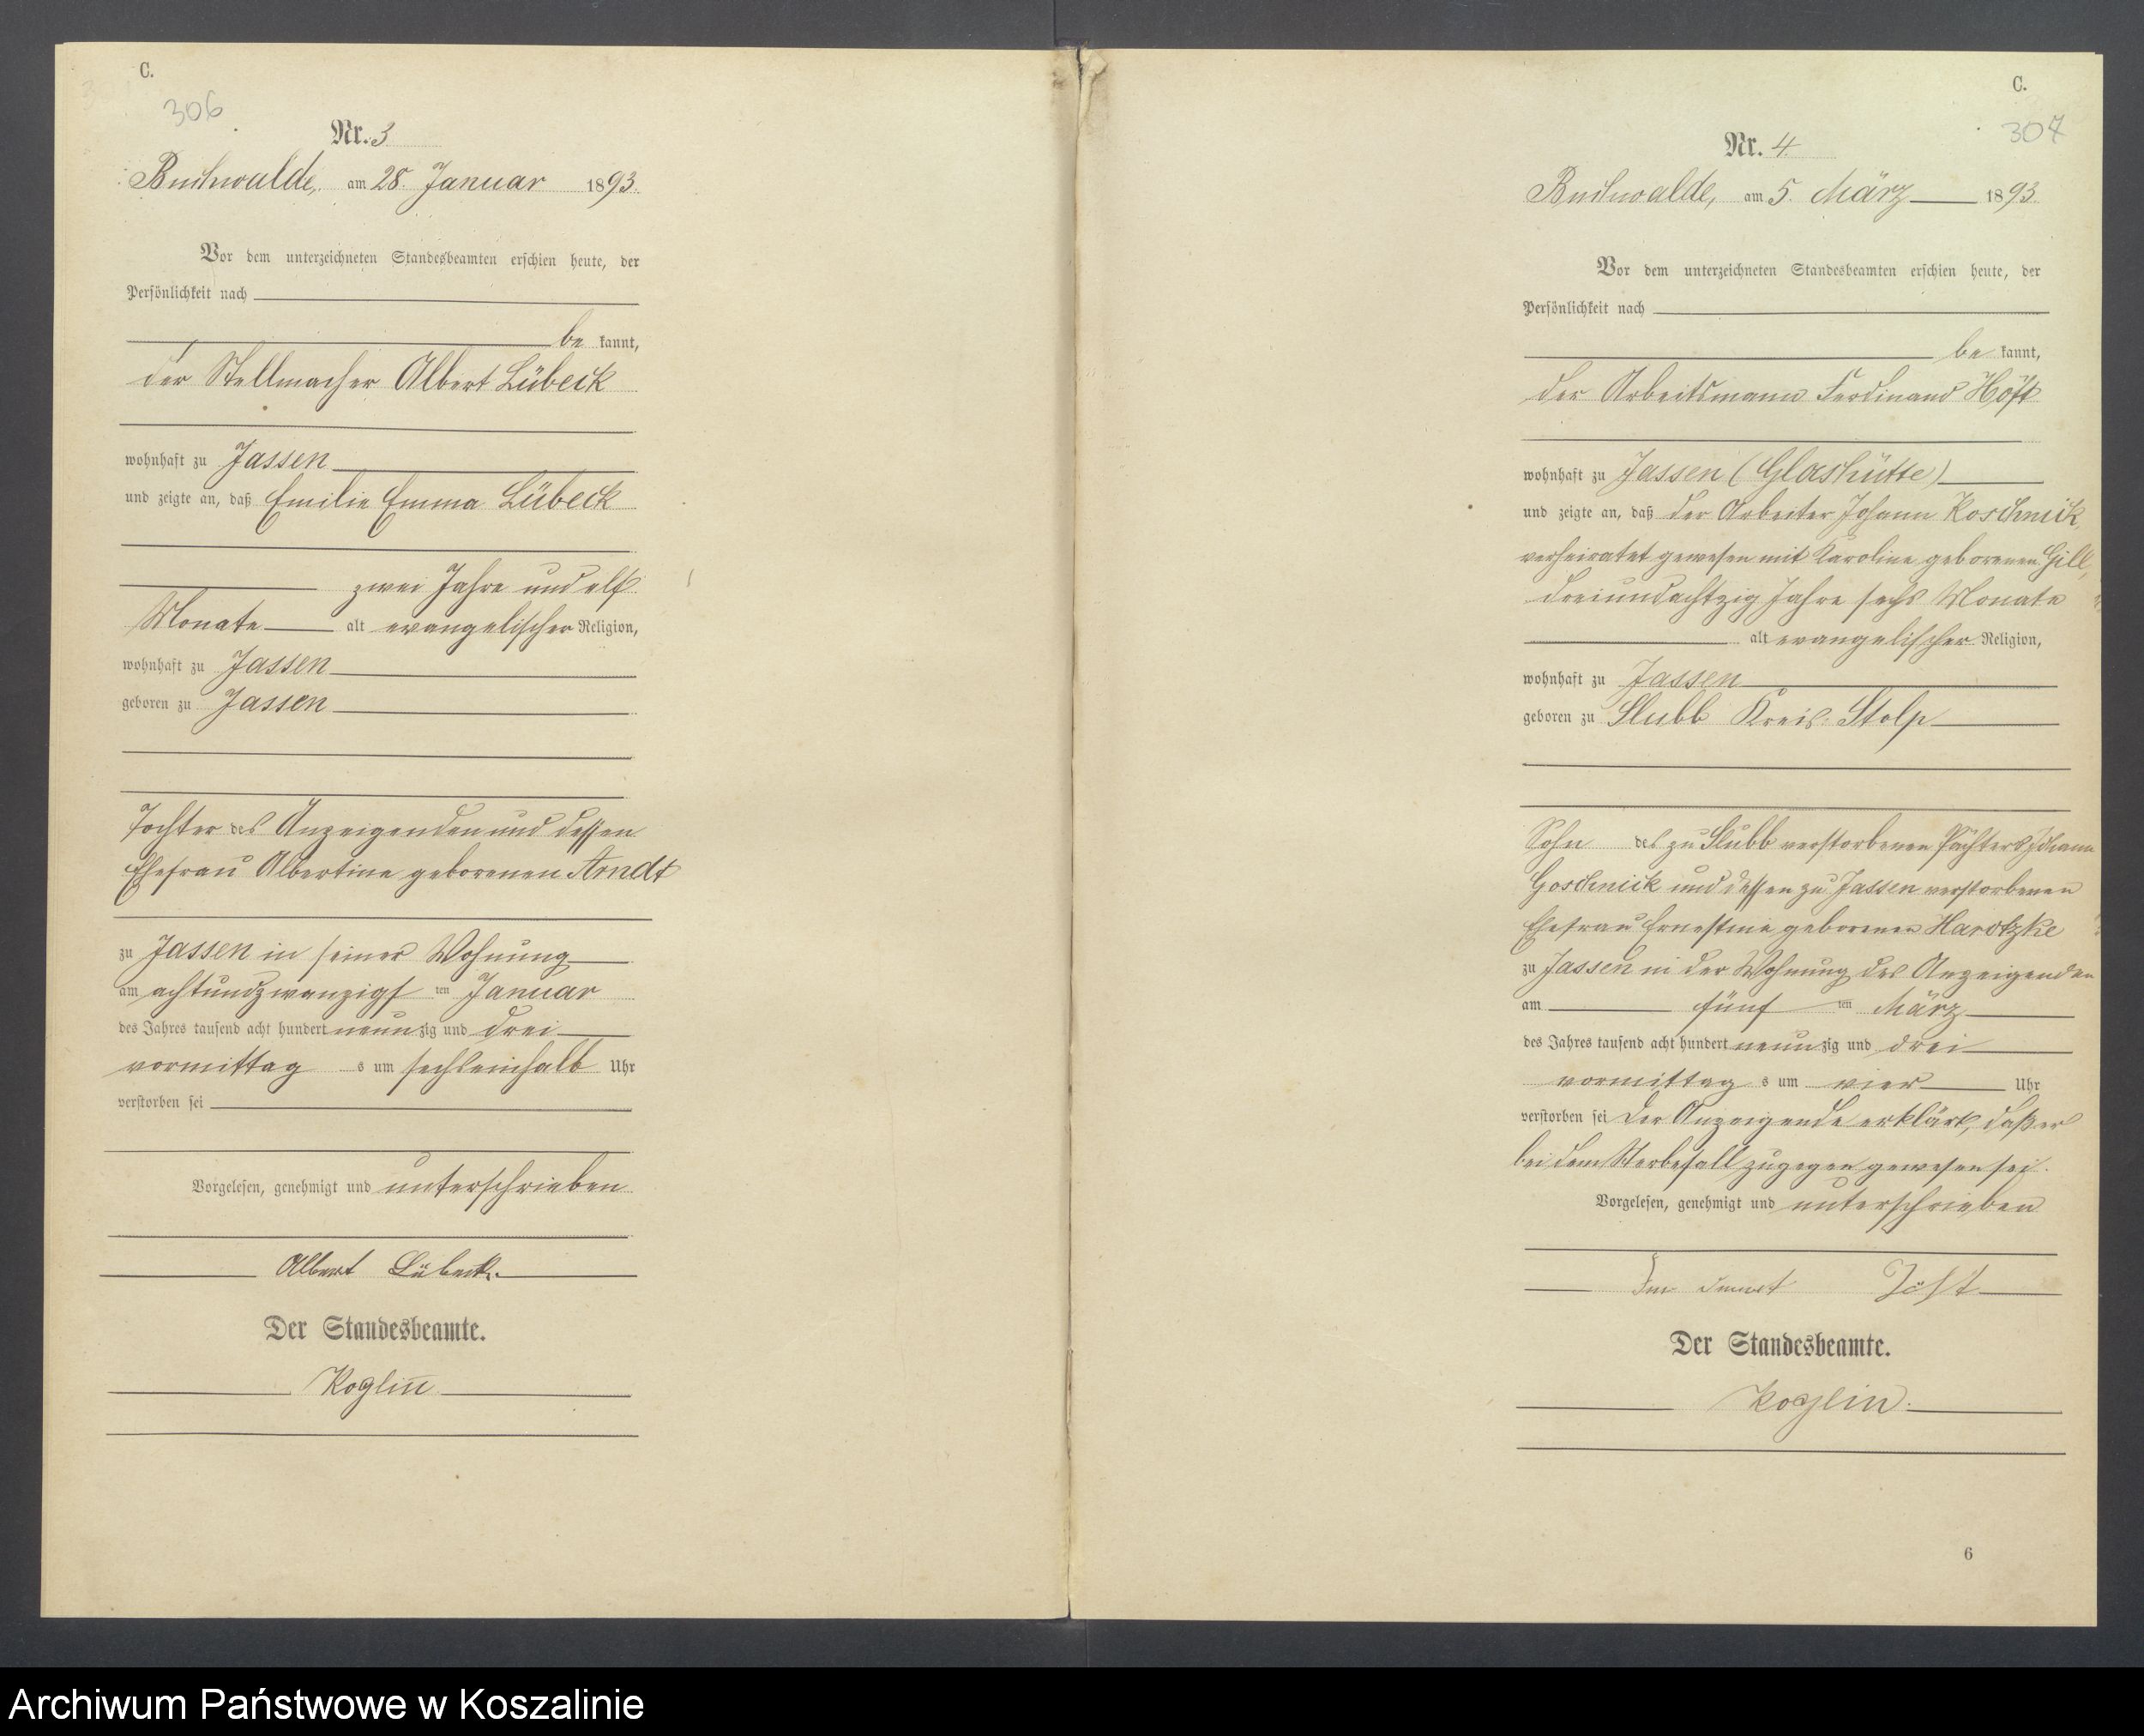 C.
306
Nr. 3
Buchwalde, am 28. Januar 1893.
Vor dem unterzeichneten Standesbeamten erschien heute, der
Persönlichkeit nach
be kannt,
der Stellmacher Albert Lübeck
wohnhaft zu Jassen
und zeigte an, daß Emilie Emma Lübeck
zwei Jahre und elf
Monate alt evangelischer Religion,
wohnhaft zu Jassen
geboren zu Jassen
Tochter des Anzeigenden und dessen
Ehefrau Albertine geborenen Arndt
zu Jassen in seiner Wohnung
am achtundzwanzigsten Januar
des Jahres tausend acht hundert neunzig und drei
vormittags um sechseinhalb Uhr
verstorben sei
Vorgelesen, genehmigt und unterschrieben
Albert Lübeck.
Der Standesbeamte.
Koglin
C.
307
Nr. 4.
Buchwalde, am 5. März 1893.
Vor dem unterzeichneten Standesbeamten erschien heute, der
Persönlichkeit nach
be kannt,
der Arbeitsmann Ferdinand Höft
wohnhaft zu Jassen (Glashütte)
und zeigte an, daß der Arbeiter Johann Koschnick,
verheiratet gewesen mit Karoline geborenen Gill,
dreiundachtzig Jahre sechs Monate
alt evangelischer Religion,
wohnhaft zu Jassen
geboren zu Klubb Kreis Stolp
Sohn des zu Klubb verstorbenen Pächters Johann
Goschnick und dessen zu Jassen verstorbenen
Ehefrau Ernestine geborenen Harotzke
zu Jassen in der Wohnung des Anzeigenden
am fünften März
des Jahres tausend acht hundert neunzig und drei
vormittags um vier Uhr
verstorben sei Der Anzeigende erklärt, daß er
bei dem Sterbefall zugegen gewesen sei.
Vorgelesen, genehmigt und unterschrieben
Der Standesbeamte.
Koglin.
6
Archiwum Państwowe w Koszalinie